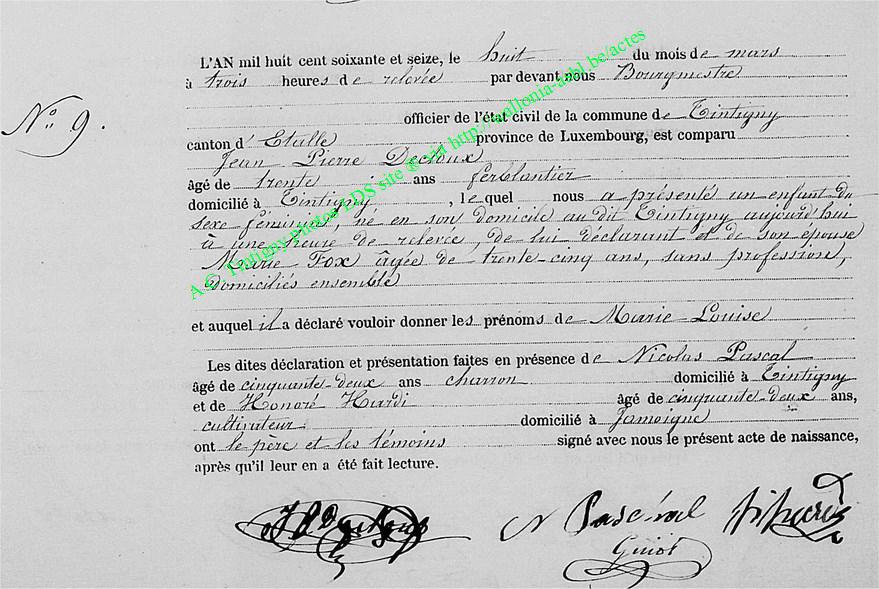 L'AN mil huit cent soixante et seize, le huit du mois de mars
à trois heures de relevée par devant nous Bourgmestre
officier de l'état civil de la commune de Tintigny
N° 9.
canton d'Etalle province de Luxembourg, est comparu
Jean Pierre Decloux
âgé de trente ans ferblantier
domicilié à Tintigny, lequel nous a présenté un enfant du
sexe féminin, né en son domicile au dit Tintigny aujourd'hui
à une heure de relevée, de lui déclarant et de son épouse
Marie Fox âgée de trente-cinq ans, sans profession,
domiciliés ensemble
et auquel il a déclaré vouloir donner les prénoms de Marie Louise
Les dites déclaration et présentation faites en présence de Nicolas Pascal
âgé de cinquante-deux ans charron domicilié à Tintigny
et de Honoré Hardi âgé de cinquante-deux ans,
cultivateur domicilié à Jamoigne
ont le père et les témoins signé avec nous le présent acte de naissance,
après qu'il leur en a été fait lecture.
N Pascal
Guiot
A.G. Tintigny photos LDS site ® via http://wallonia-asbl.be/actes